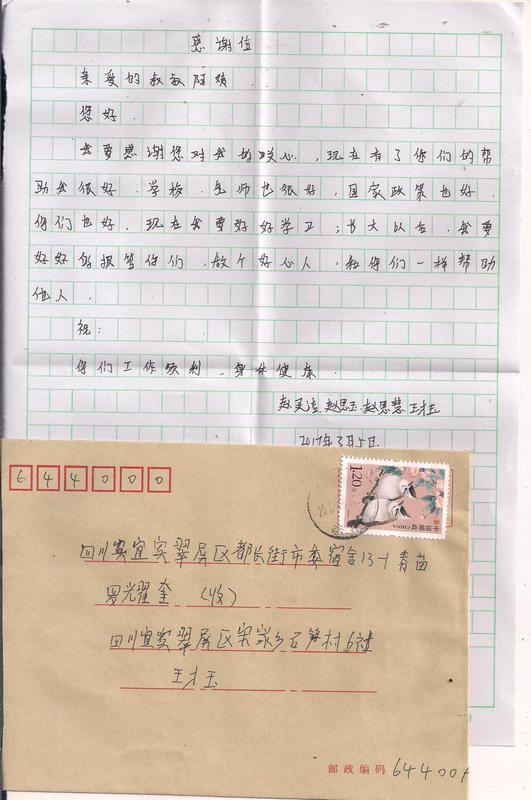 感谢信
亲爱的叔叔阿姨
您好
我要感谢您对我的关心，现在有了你们的帮
助我很好，学校，老师也很好，国家政策也好，
你们也好，现在我要好好学习，长大以后，我要
好好的报答你们，做个好心人，和你们一样帮助
他人，
祝：
你们工作顺利，身体健康
赵思玉 赵思慧 王才玉
2017年3月5日
644000
1.20元
中国邮政 CHINA
四川省宜宾翠屏区都长街市委宿舍13-1青苗
罗光翟奎（收）
四川宜宾翠屏区宋家乡石笋村6社
王才玉
邮政编码 644004